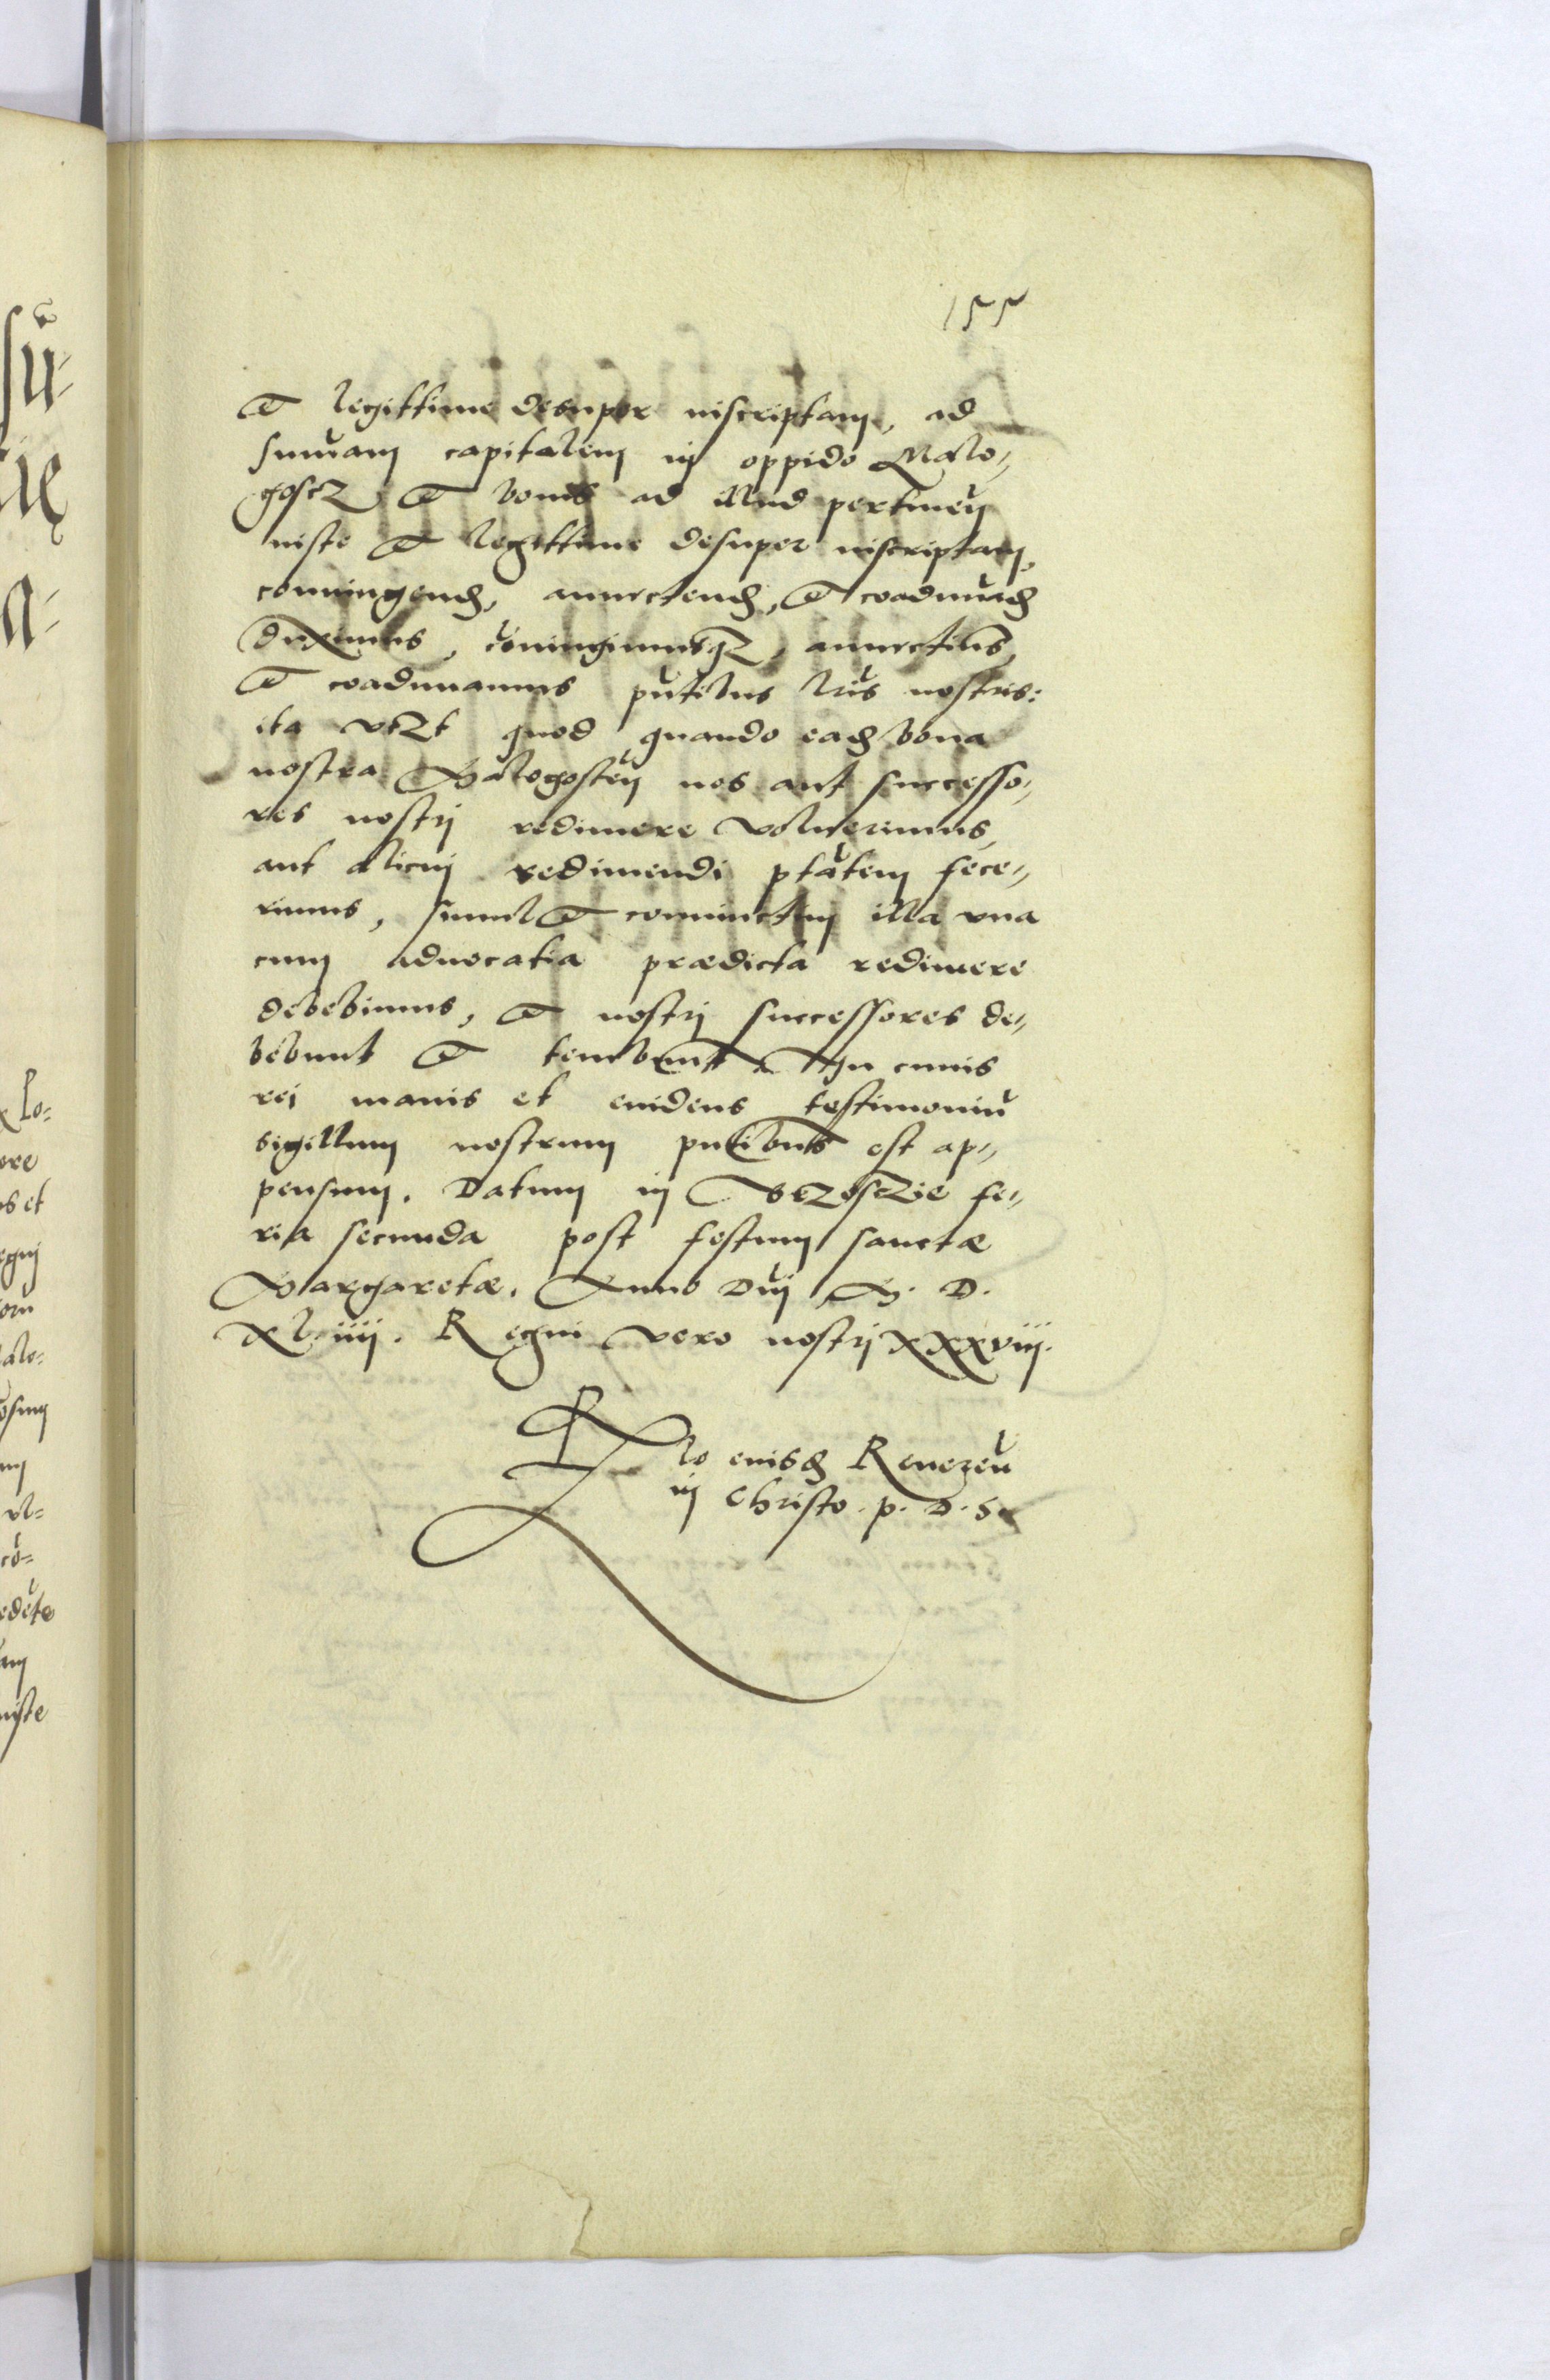 155
et legittime desuper inscriptam, ad
summam capitalem in oppido Malo-
goscz et bonis ad illud pertineñ
iuste et legittime desuper inscriptam,
coniungend, annectend, et coadunand
duximus, coniungimusqz, annectimus,
et coadunamus pñtibus lris nostris:
ita vtzt quod quando ead bona
nostra Malogosteñ nos aut successo-
res nostrj redimere voluerimus,
aut alicuj redimendi ptatem fece-
rimus, simul et coniunctim illa vna
cum aduocatia prædicta redimere
debebimus, et nostrj successores de-
bebunt et tenebunt. In cuius
rej maius et euidens testimoniū
sigillum nostrum pñtibus est ap-
pensum. Datum in Brzosczie fe-
ria secunda post festum sanctæ
Margaretæ. Anno Dñj M. D.
xliiij. Regni vero nostrj xxxviij.
Rlo eiusd Reueren
in Christo. p. D. S
su-
a-
Lo-
ore
s et
egnj
alo-
vl-
cō-
edete
iste